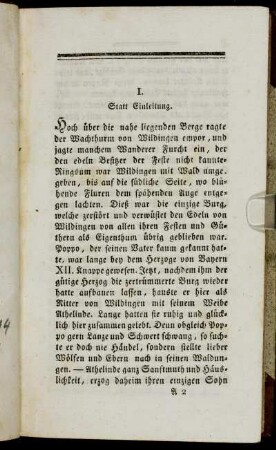 I.
Statt Einleitung.
Hoch über die nahe liegenden Berge ragte
der Wachthurm von Wildingen empor, und
jagte manchem Wanderer Furcht ein, der
den edeln Besitzer der Feste nicht kannte.
Ringsum war Wildingen mit Wald umge-
geben, bis auf die südliche Seite, wo blü-
hende Fluren dem spähenden Auge entge-
gen lachten. Dieß war die einzige Burg,
welche zerstört und verwüstet den Edeln von
Wildingen von allen ihren Festen und Gü-
thern als Eigenthum übrig geblieben war.
Poppo, der seinen Vater kaum gekannt hat-
te, war lange bey dem Herzoge von Bayern
XII. Knappe gewesen. Jetzt, nachdem ihm der
gütige Herzog die zertrümmerte Burg wieder
hatte aufbauen lassen, hauste er hier als
Ritter von Wildingen mit seinem Weibe
Athelinde. Lange hatten sie ruhig und glück-
lich hier zusammen gelebt. Denn obgleich Pop-
po gern Lanze und Schwert schwang, so such-
te er doch nie Händel, sondern stellte lieber
Wölfen und Ebern nach in seinen Waldun-
gen. — Athelinde ganz Sanftmuth und Häus-
lichkeit, erzog daheim ihren einzigen Sohn
A 2
14